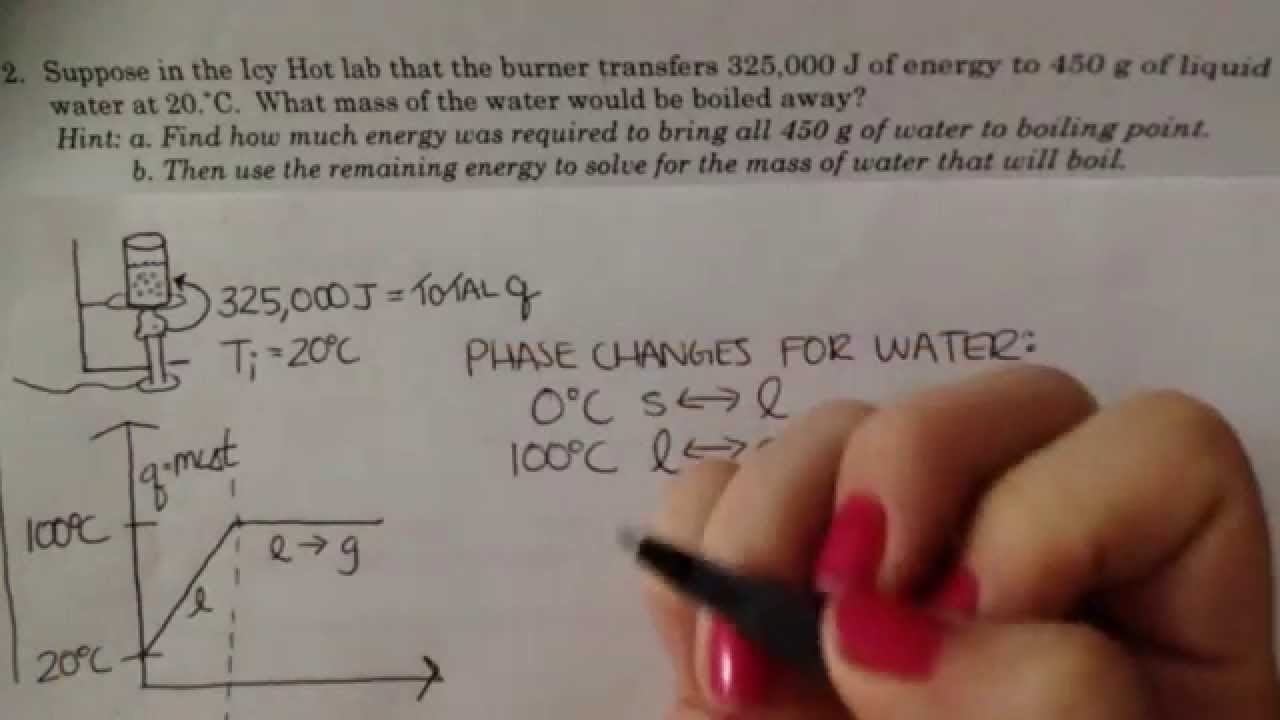 2. Suppose in the Icy Hot lab that the burner transfers 325,000 J of energy to 450 g of liquid
water at 20.°C. What mass of the water would be boiled away?
Hint: a. Find how much energy was required to bring all 450 g of water to boiling point.
b. Then use the remaining energy to solve for the mass of water that will boil.
325,000J = TOTAL q
Ti = 20°C
PHASE CHANGES FOR WATER:
0°C s ↔ l
100°C l ↔
q=mc∆t
100°C
l → g
l
20°C